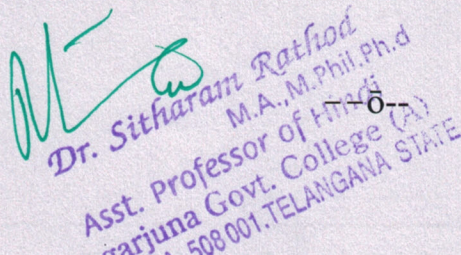 Dr. Sitharam Rathod
M.A.,M.Phil,Ph.d
--ō--
Asst. Professor of Hindi
garjuna Govt. College (A)
508001.TELANGANA STATE